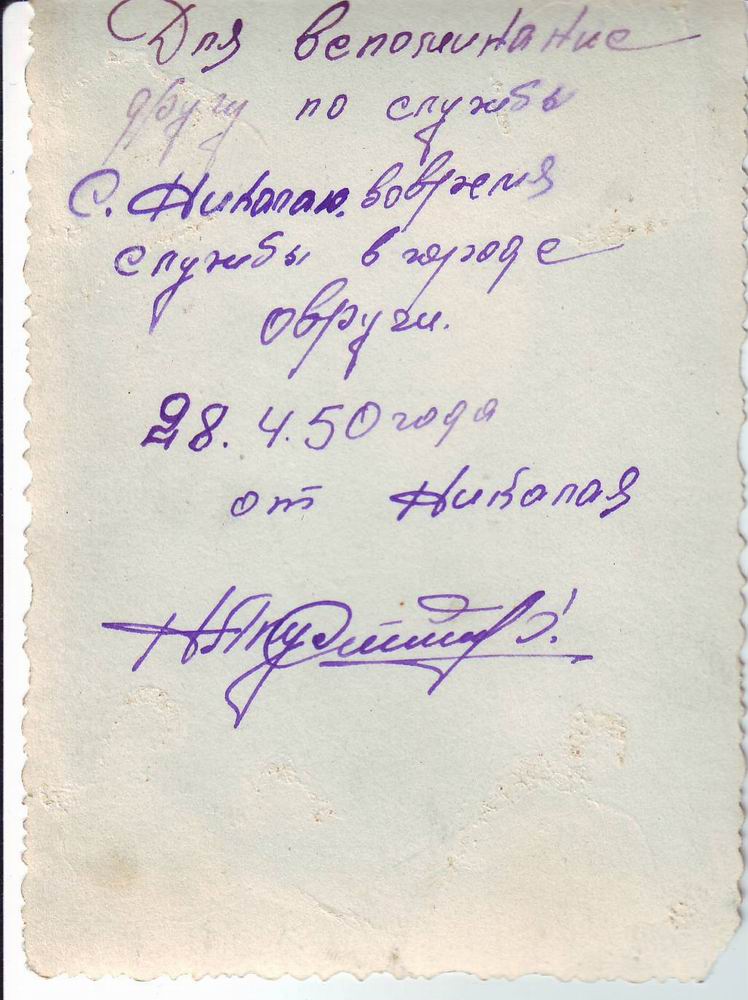 Для вспоминание
другу по службы
С. Николаю. вовремя
службы в городе
овручи.
28. 4. 50 года
от Николая